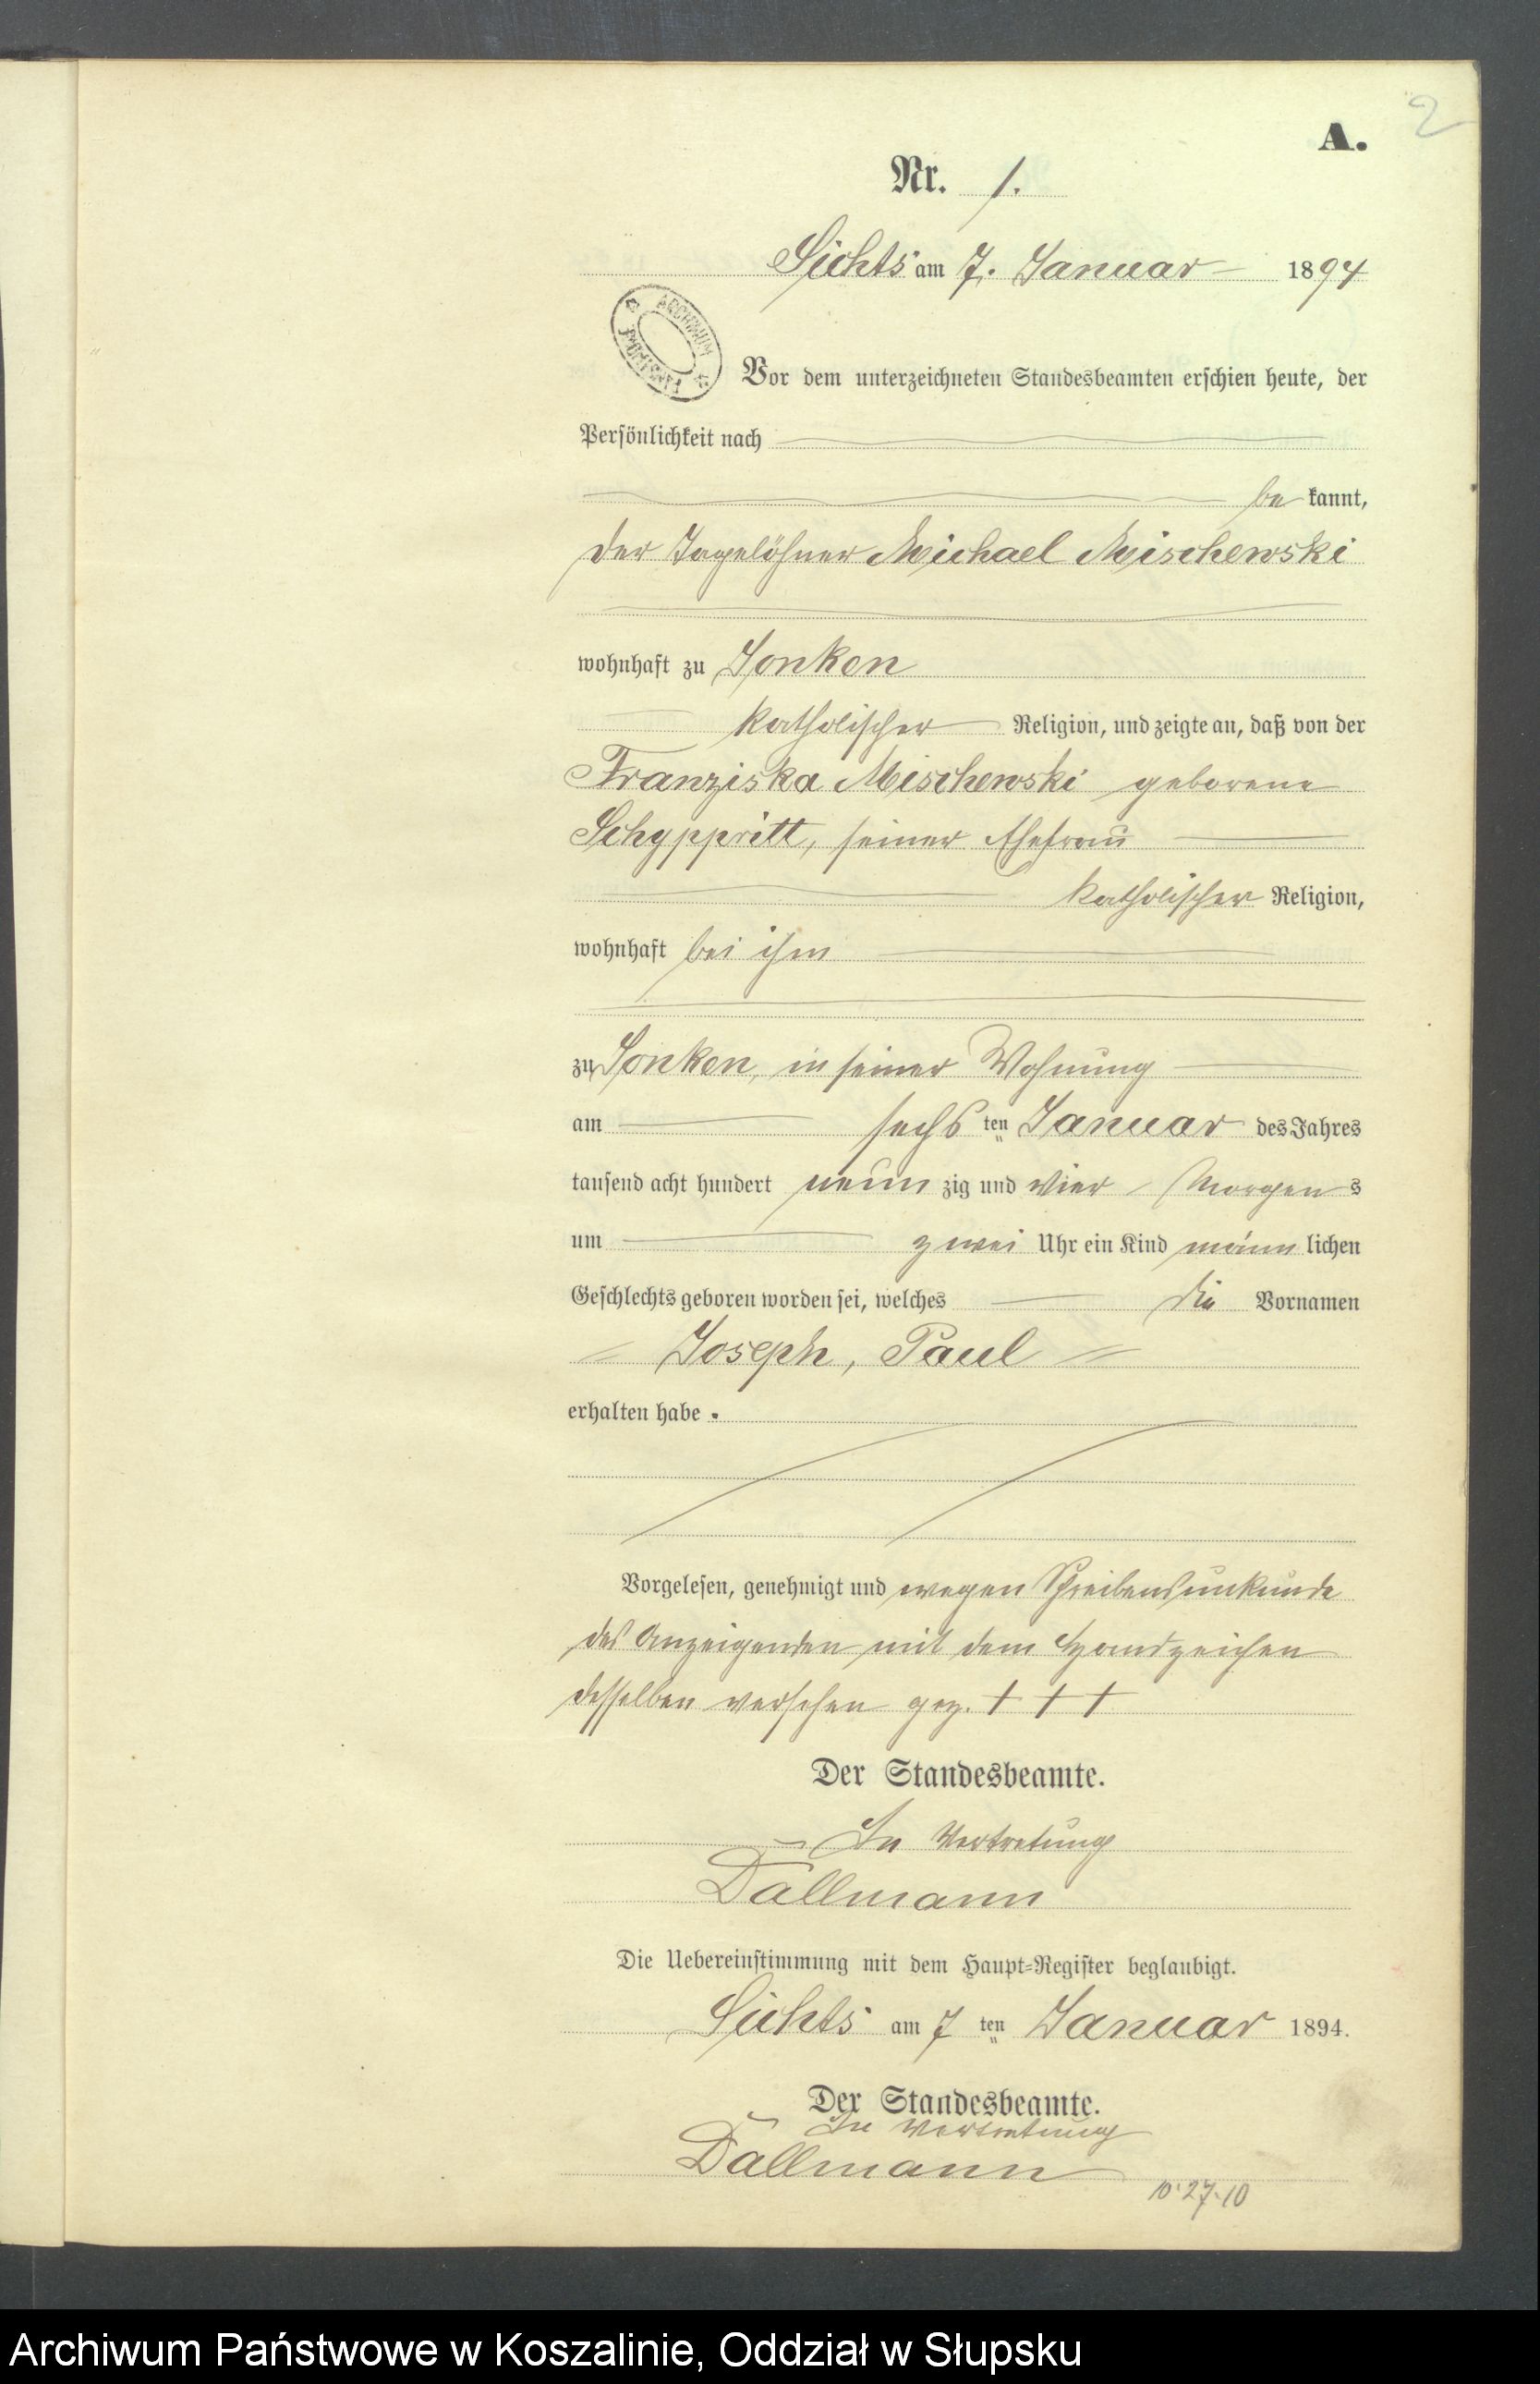 2
A.
Nr. 1.
Lichts am 7. Januar 1894
ARCHIWUM
Vor dem unterzeichneten Standesbeamten erschien heute, der
Persönlichkeit nach
be kannt,
der Tagelöhner Michael Mischewski
wohnhaft zu Sonken
katholischer Religion, und zeigte an, daß von der
Franziska Mischewski geborene
Schyppritt, seiner Ehefrau
katholischer Religion,
wohnhaft bei ihm
zu Sonken, in seiner Wohnung
am sechs ten Januar des Jahres
tausend acht hundert neun zig und vier Morgen s
um zwei Uhr ein Kind männ lichen
Geschlechts geboren worden sei, welches die Vornamen
Joseph, Paul
erhalten habe.
Vorgelesen, genehmigt und wegen Schreibensunkunde
des Anzeigenden mit dem Handzeichen
desselben versehen gez. + + +
Der Standesbeamte.
In Vertretung
Dallmann
Die Uebereinstimmung mit dem Haupt-Register beglaubigt.
Lichts am 7 ten Januar 1894.
Der Standesbeamte.
In Vertretung
Dallmann
10.27.10
Archiwum Państwowe w Koszalinie, Oddział w Słupsku